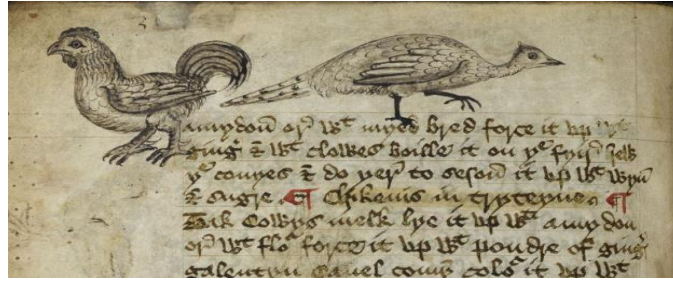 amydoũ or̃ wᵗ myed bred force it up wᵗ
ging̃ & wᵗ clowes boille it on yᵉ fyir̃ sew
yᵉ conyes & do yer̃ to sesoũ it up wᵗ wyn
& sugre ¶ Chikenis in tryteyne ¶
Tak Cowys melk lye it up wᵗ amydon
or̃ wᵗ flo᷑ force it up wᵗ poudre of ging̃
galentyn canel comỹ colo᷑ it up wᵗ